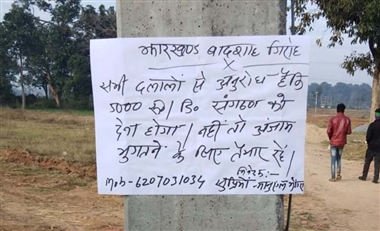 झारखण्ड बादशाह गिरोह
X
सभी दलालों से अनुरोध है कि
5000 रु०/ डि० संगठन को
देना होगा/ नहीं तो अंजाम
भुगतने के लिए तैयार रहें/
निवेदक:-
Mob-6207031034 सुप्रिमो-